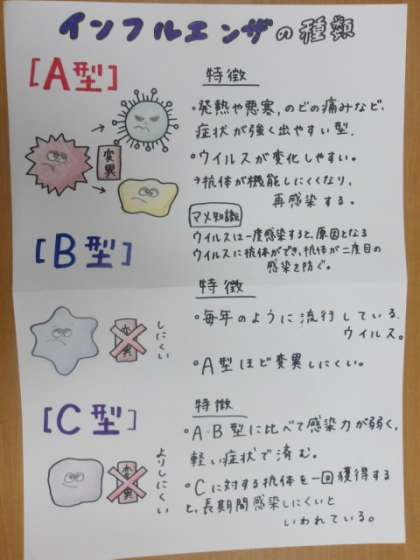 インフルエンザの種類
[A型]
特徴
・発熱や悪寒、のどの痛みなど、
症状が強く出やすい型。
変異
・ウイルスが変化しやすい。
→抗体が機能しにくくなり、
再感染する。
マメ知識
ウイルスは一度感染すると、原因となる
ウイルスに抗体ができ、抗体が二度目の
感染を防ぐ。
[B型]
特徴
・毎年のように流行している
ウイルス。
変異
しにくい
・A型ほど変異しにくい。
[C型]
特徴
・A・B型に比べて感染力が弱く、
軽い症状で済む。
変異
よりしにくい
・Cに対する抗体を一回獲得する
と、長期間感染しにくいと
いわれている。